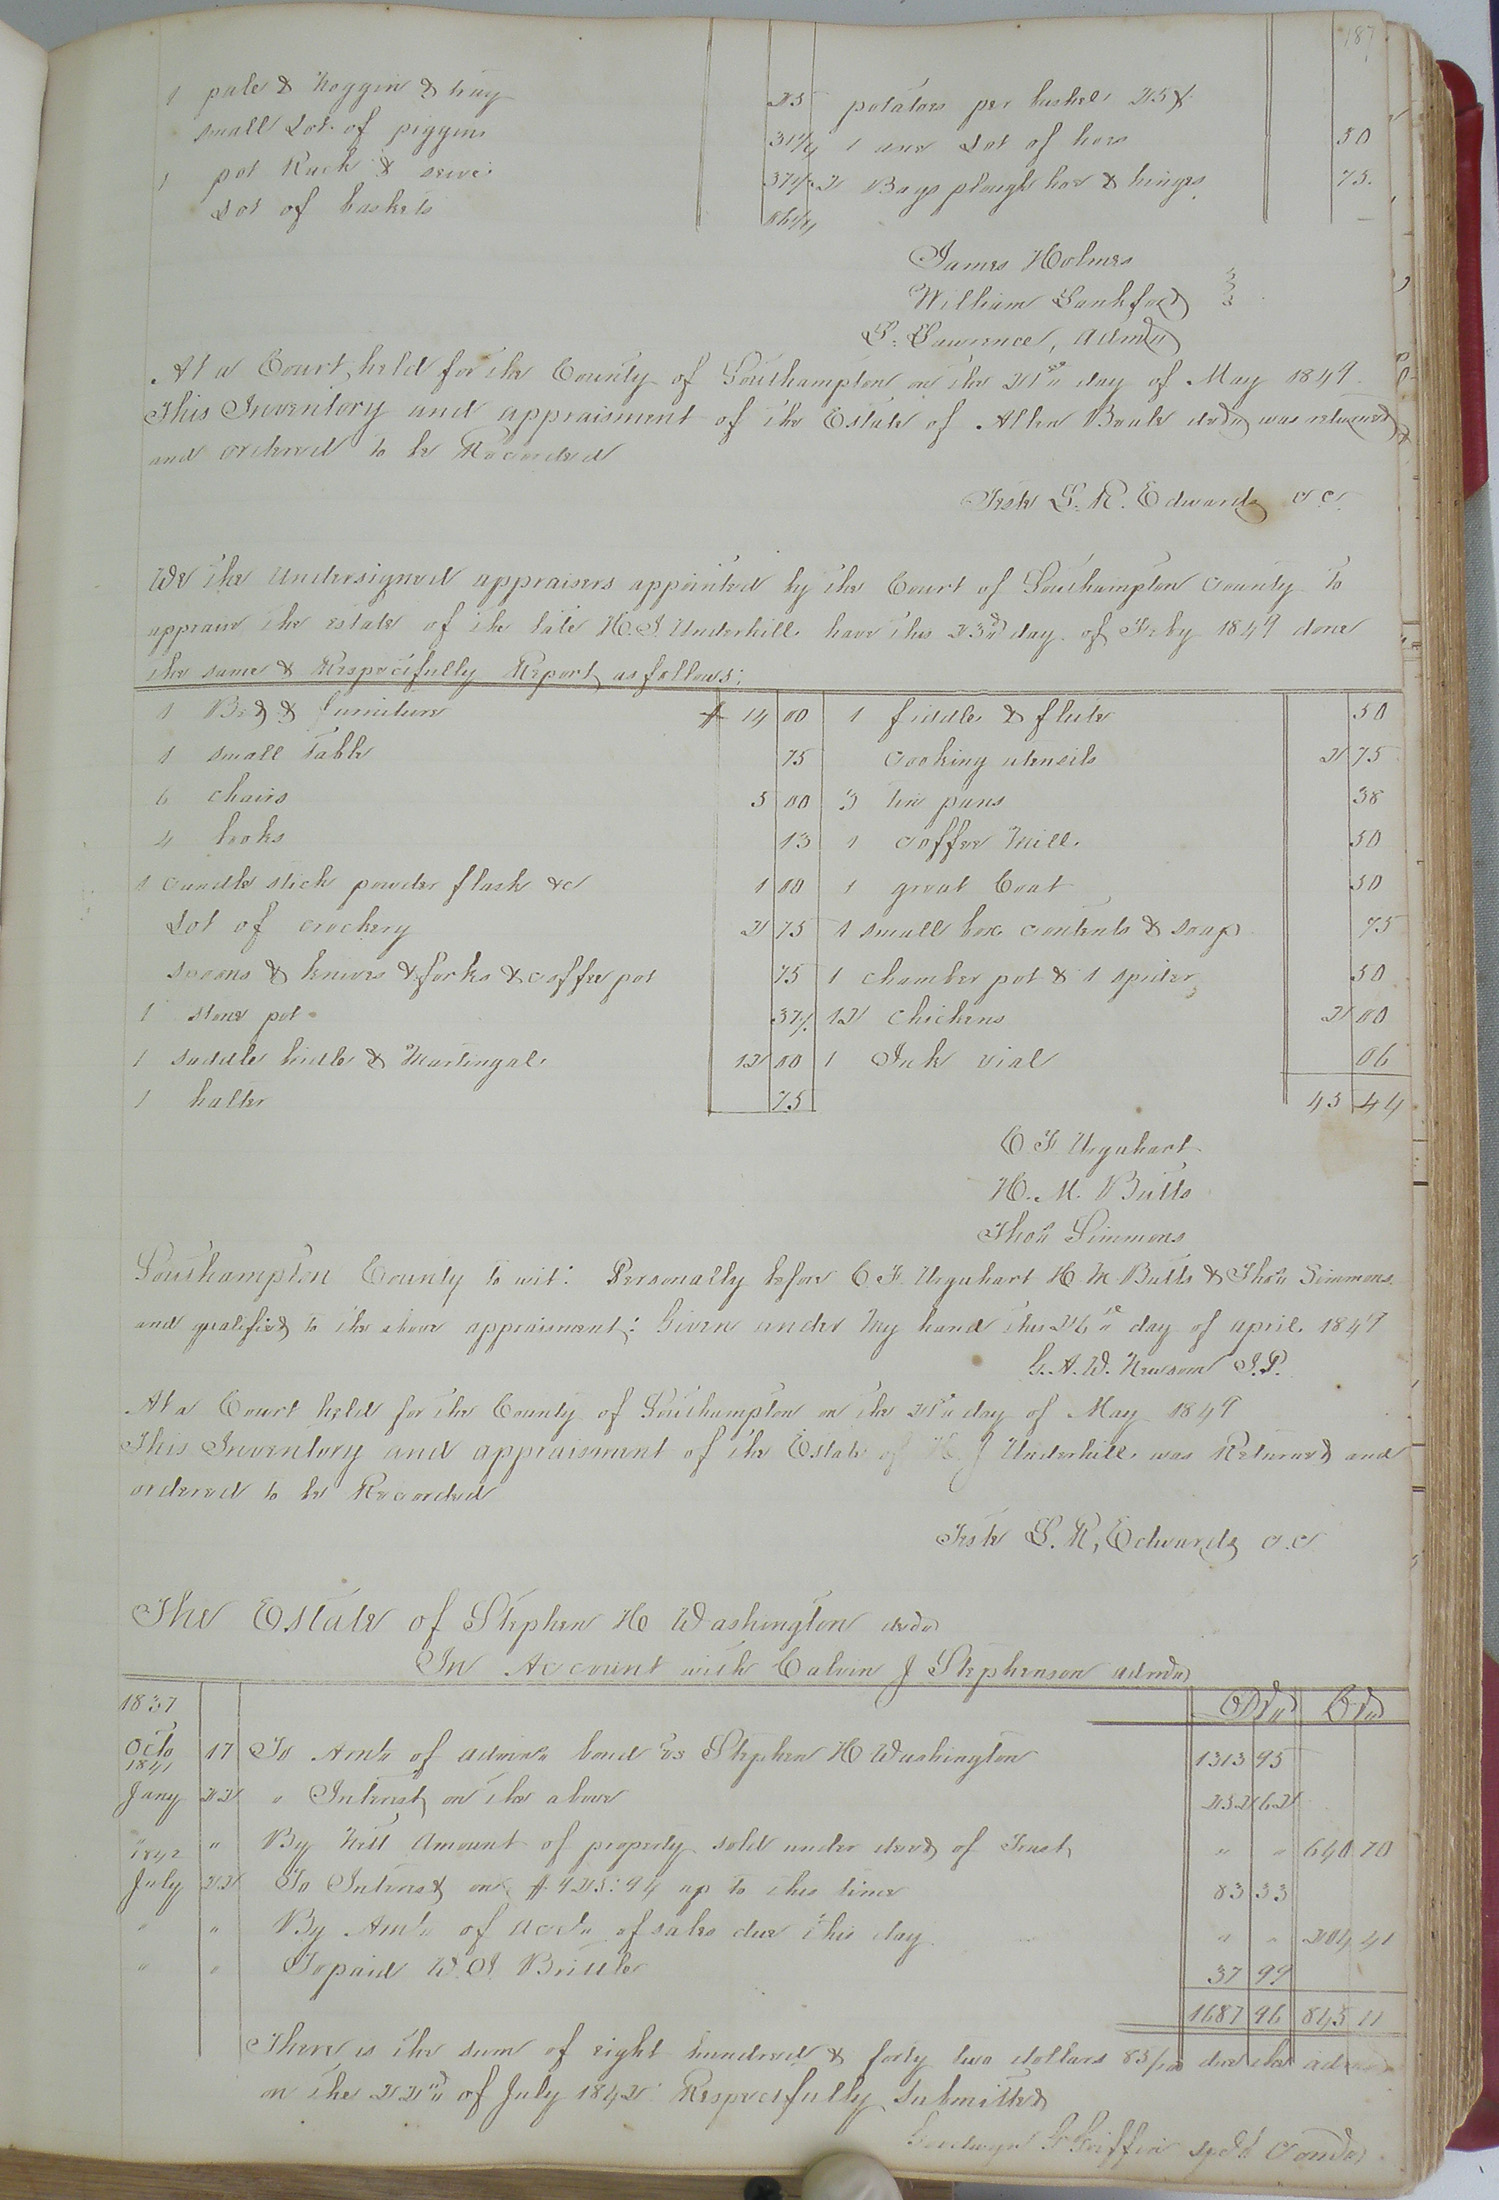 187
1 pale & Noggin & tray 25 potatoes per bushel 25¢
small Lot of piggins 31¼ 1 axe Lot of hoes 50
1 pot Rack & seive 37½ 2 Bags plough hoe & hinges 75
Lot of baskets 
James Holmes
William Lankford
L. Lawrence, Admr
At a Court held for the County of Southampton on the 21st day of May 1849
This Inventory and appraisment of the Estate of Allen Beale decd was returned
and ordered to be Recorded
Teste L. R. Edwards c c
We the Undersigned appraisers appointed by the Court of Southampton County to
appraise the estate of the late H. J. Underhill have this 23rd day of Feby 1849 done
the same & Respectfully Report as follows:
1 Bed & furniture $ 14 00 1 fiddle & flute 50
1 small Table 75 Cooking utensils 2 75
6 chairs 3 00 3 tin pans 38
4 books 13 1 Coffee Mill 50
1 candle stick powder flask &c 1 00 1 great Coat 50
Lot of crockery 2 75 1 small box contents & soap 75
spoons & knives & forks & coffee pot 75 1 chamber pot & 1 spider 50
1 stone pot 37½ 12 chickens 2 00
1 saddle bridle & Martingal 12 00 1 Ink vial 06
1 halter 75 45 44
C F Urquhart
H. M. Butts
Thos Simmons
Southampton County to wit: Personally before C. F. Urquhart H. M. Butts & Thos Simmons
and qualified to the above appraisment: Given under My hand this 26th day of april 1849
G. A. W. Newsom J.P.
At a Court held for the County of Southampton on the 21st day of May 1849
This Inventory and appraisment of the Estate of H. J Underhill was Returned and
ordered to be Recorded
Teste L. R. Edwards c. c
The Estate of Stephen H Washington decd
In Account with Calvin J Stephenson admr
1837 Dr Cr
Octo 17 To Amt of admrs bond vs Stephen H Washington 1313 95
1841
Jany 22 " Interest on the above 252 62
" " By Nett Amount of property sold under deed of Trust " " 640 70
1842
July 22 To Interest on $925:94 up to this time 83 33
" " By Amt of acct of sales due this day " " 204 41
" " To paid W. J. Brittle 37 99
1687 96 845 11
There is the sum of eight hundred & forty two dollars 85/100 due the admr
on the 22nd of July 1842 Respectfully Submitted
Griffin Comr